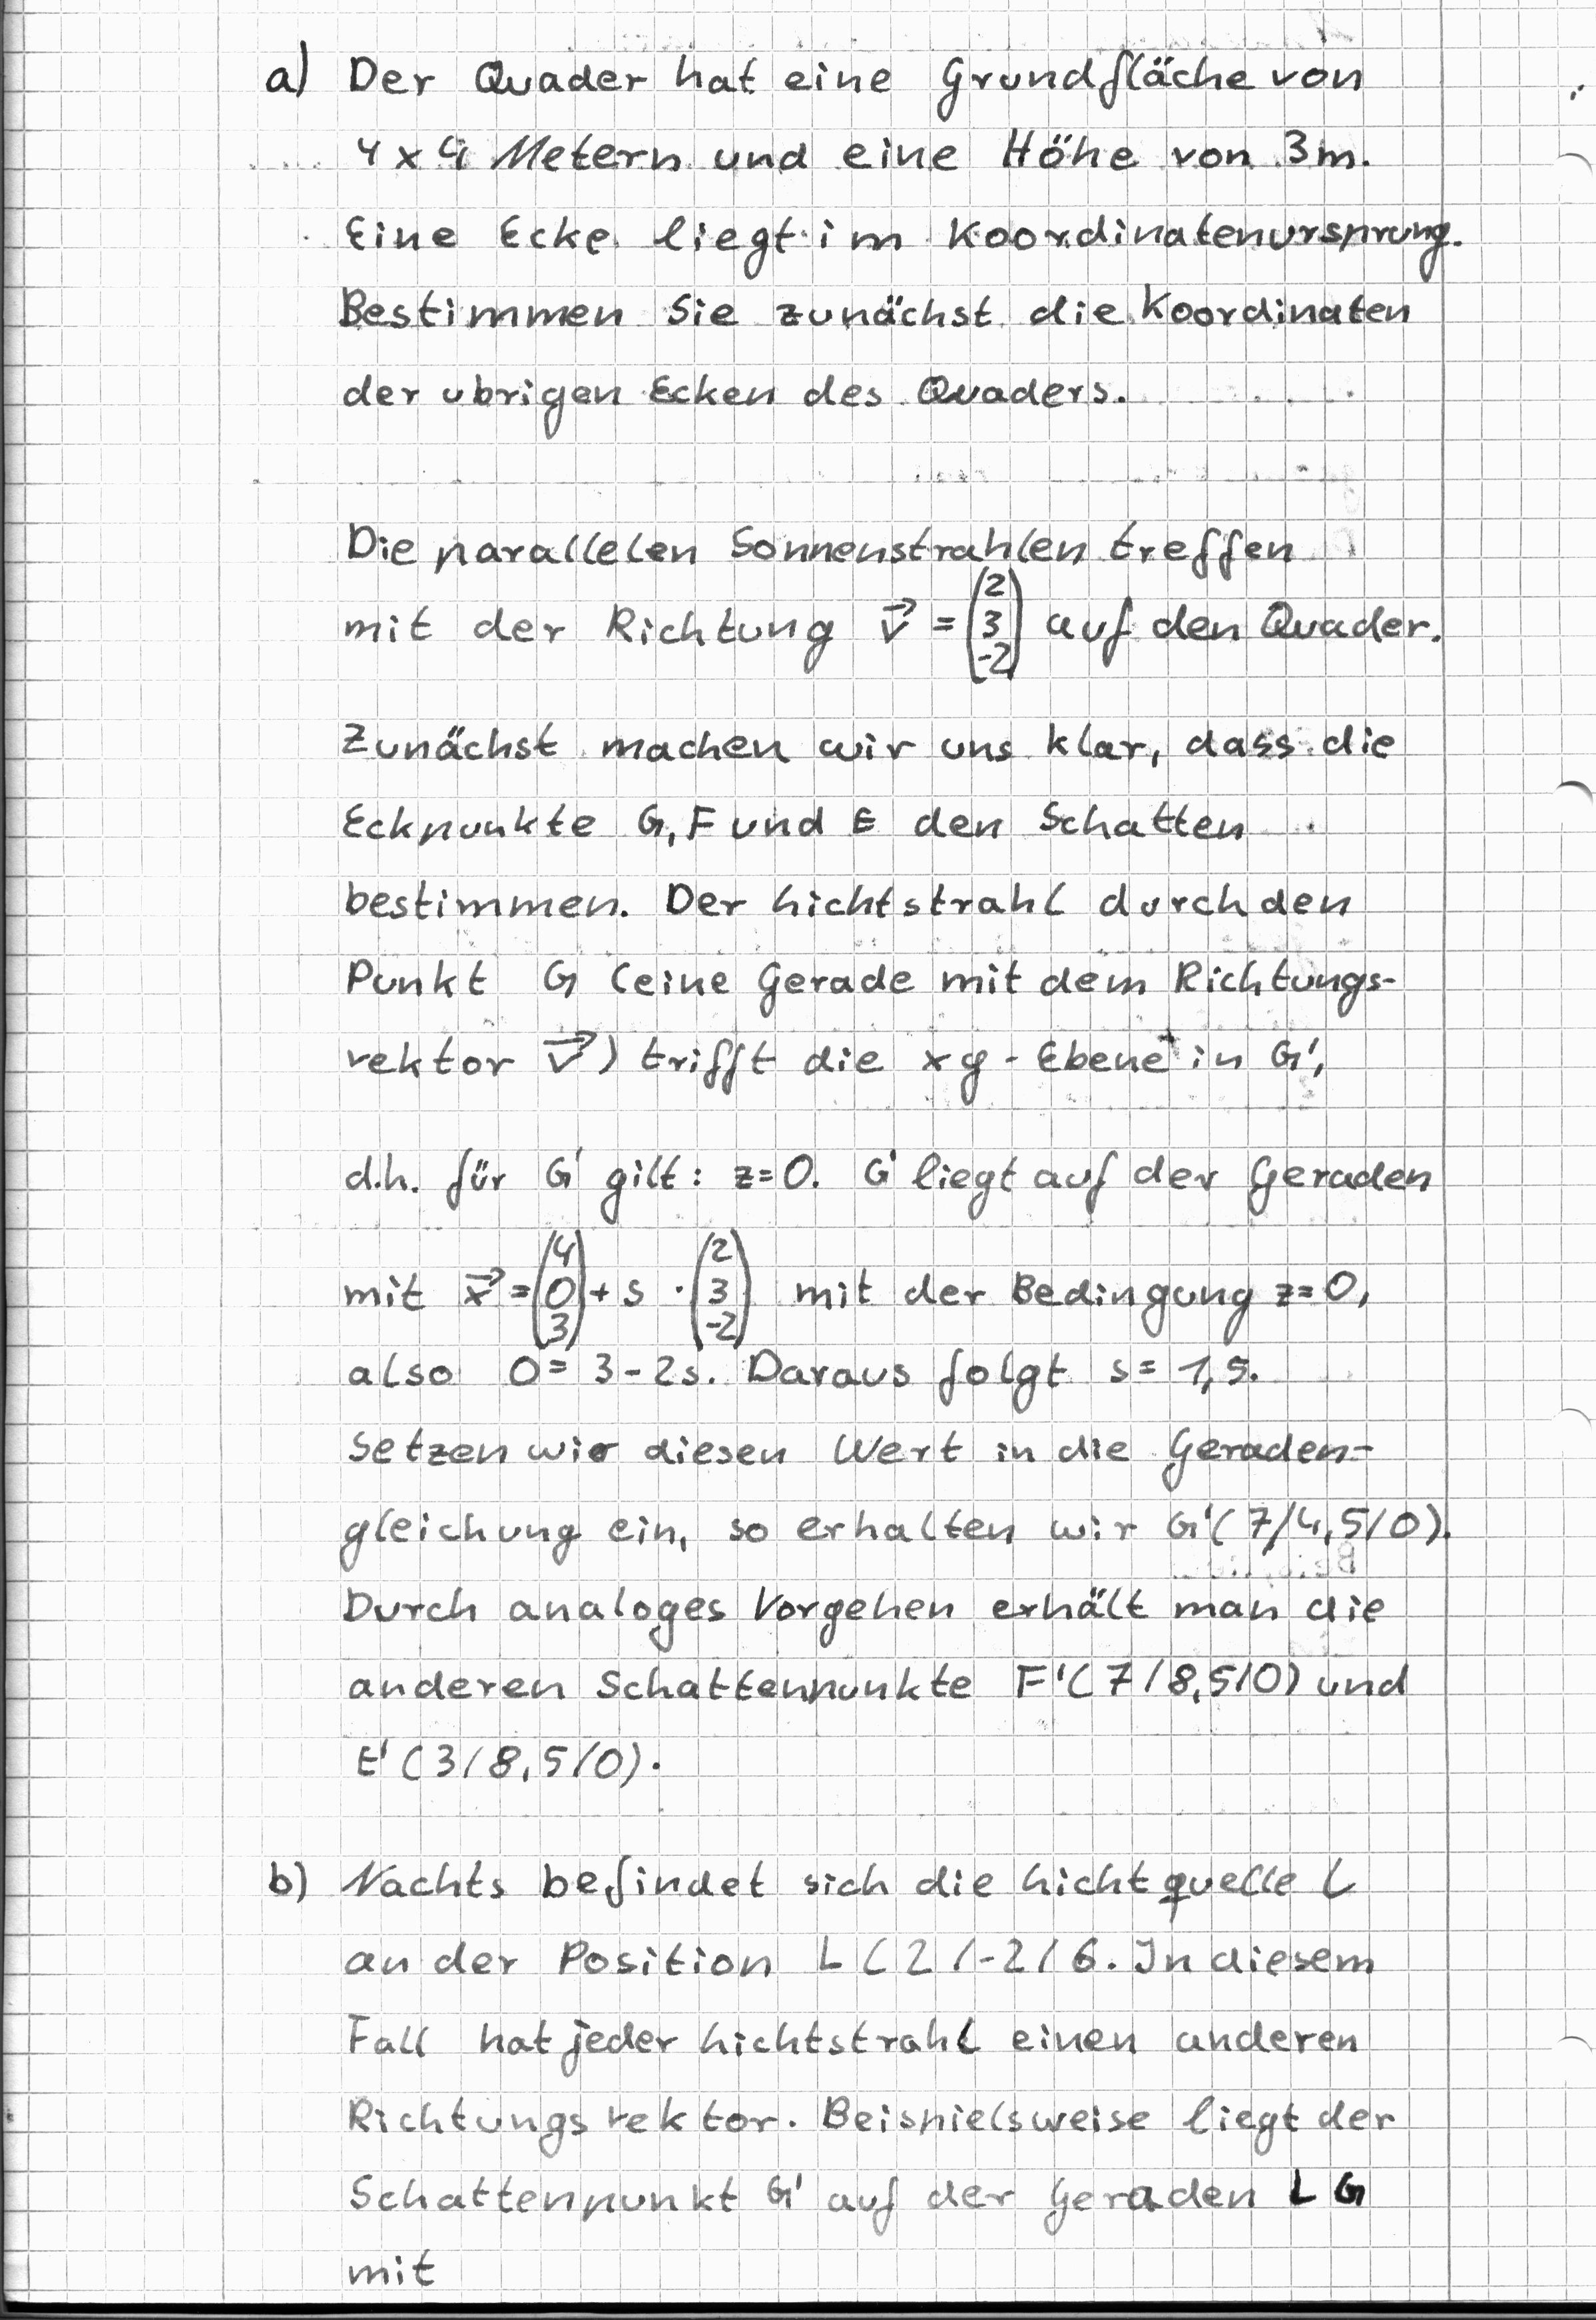 a) Der Quader hat eine Grundfläche von
4 x 4 Metern und eine Höhe von 3m.
Eine Ecke liegt im Koordinatenursprung.
Bestimmen Sie zunächst die Koordinaten
der ubrigen Ecken des Quaders.
Die parallelen Sonnenstrahlen treffen
mit der Richtung v⃗ = (2 3 -2) auf den Quader.
Zunächst machen wir uns klar, dass die
Eckpunkte G, F und E den Schatten
bestimmen. Der Lichtstrahl durch den
Punkt G (eine Gerade mit dem Richtungs-
vektor v⃗) trifft die xy-Ebene in G',
d.h. für G' gilt: z=0. G' liegt auf der Geraden
mit x⃗ = (4 0 3) + s · (2 3 -2) mit der Bedingung z=0,
also 0 = 3 - 2s. Daraus folgt s = 1,5.
Setzen wir diesen Wert in die Geraden-
gleichung ein, so erhalten wir G'(7/4,5/0).
Durch analoges Vorgehen erhält man die
anderen Schattenpunkte F'(7/8,5/0) und
E'(3/8,5/0).
b) Nachts befindet sich die Lichtquelle L
an der Position L(2/-2/6. In diesem
Fall hat jeder Lichtstrahl einen anderen
Richtungsvektor. Beispielsweise liegt der
Schattenpunkt G' auf der Geraden LG
mit